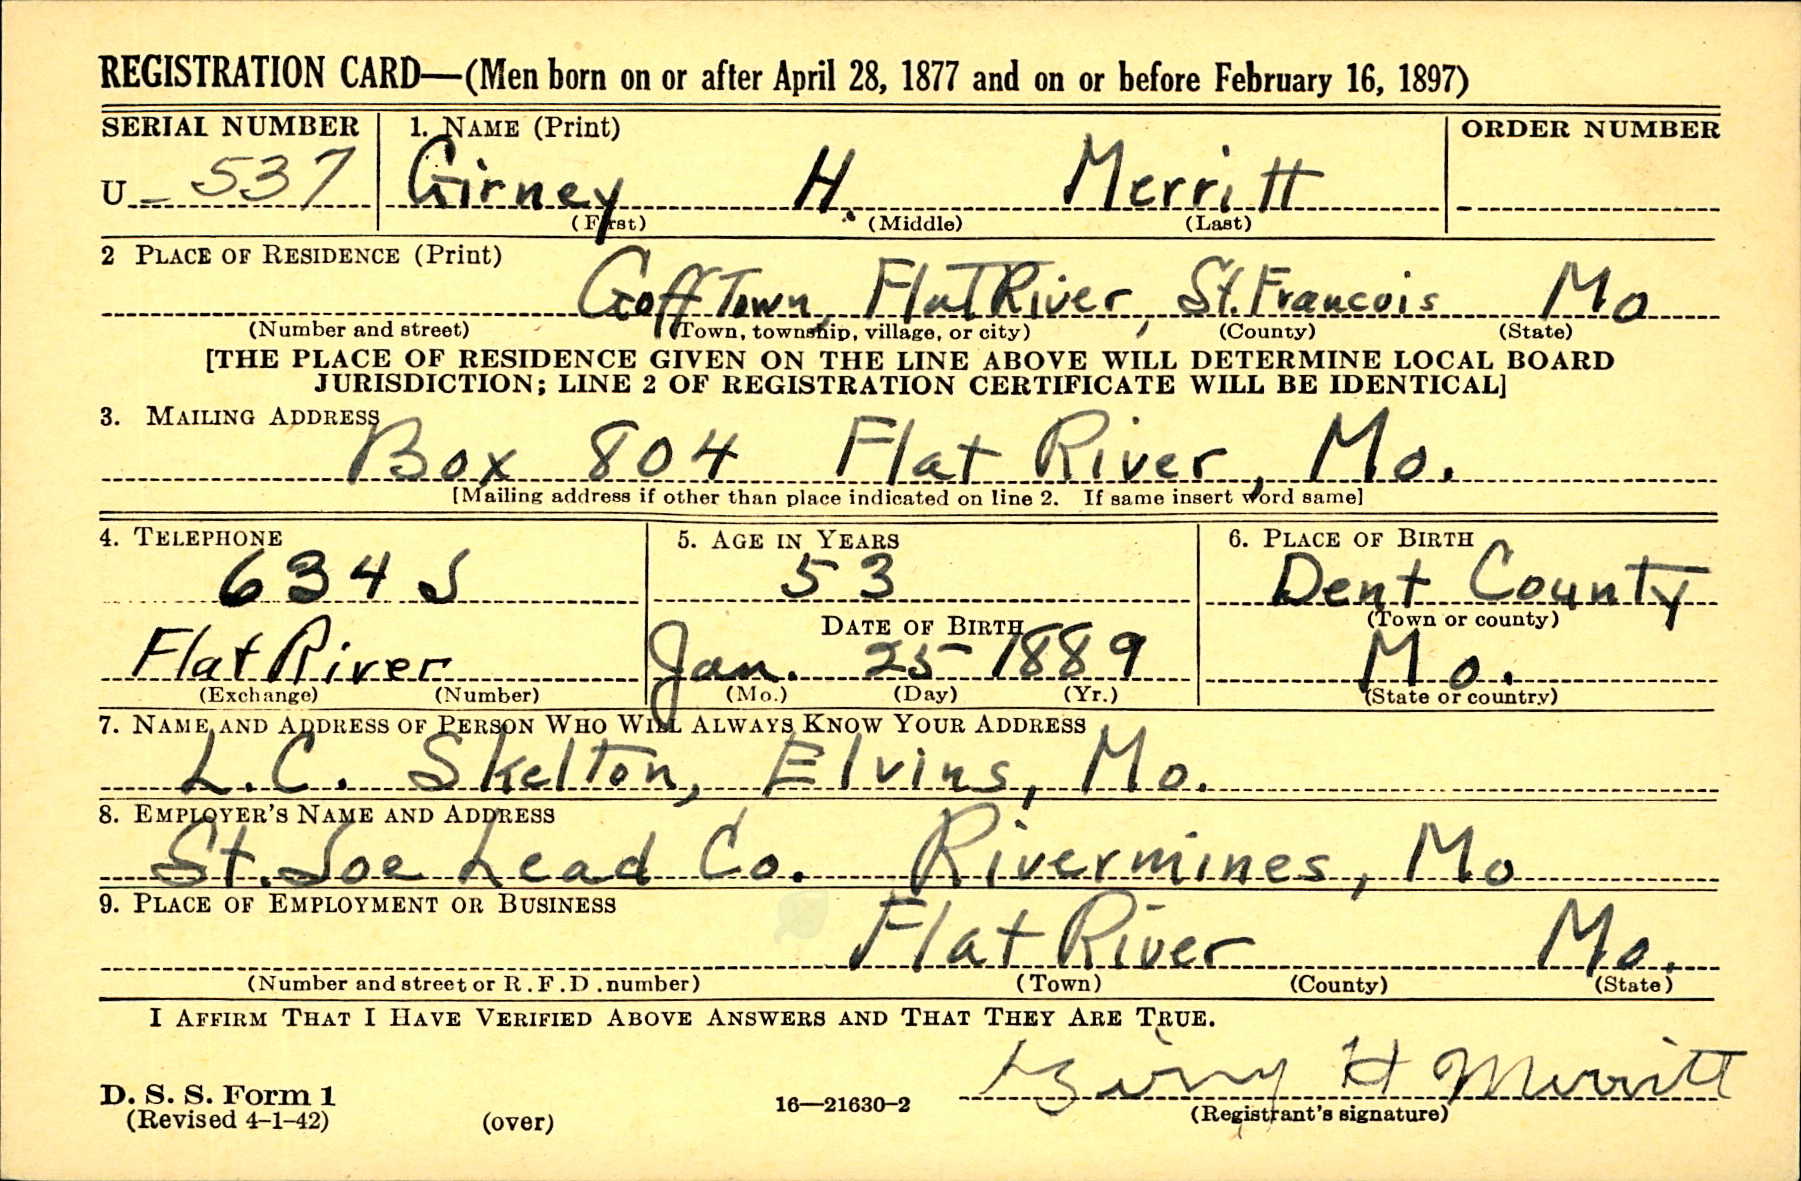 REGISTRATION CARD—(Men born on or after April 28, 1877 and on or before February 16, 1897)
SERIAL NUMBER 1. NAME (Print) ORDER NUMBER
U – 537 Girney H. Merritt
(First) (Middle) (Last)
2 PLACE OF RESIDENCE (Print)
Goff Town, Flat River, St. Francois Mo
(Number and street) (Town, township, village, or city) (County) (State)
[THE PLACE OF RESIDENCE GIVEN ON THE LINE ABOVE WILL DETERMINE LOCAL BOARD
JURISDICTION; LINE 2 OF REGISTRATION CERTIFICATE WILL BE IDENTICAL]
3. MAILING ADDRESS
Box 804 Flat River, Mo.
[Mailing address if other than place indicated on line 2. If same insert word same]
4. TELEPHONE 5. AGE IN YEARS 6. PLACE OF BIRTH
634 J 53 Dent County
DATE OF BIRTH (Town or county)
Flat River Jan. 25 1889 Mo.
(Exchange) (Number) (Mo.) (Day) (Yr.) (State or country)
7. NAME AND ADDRESS OF PERSON WHO WILL ALWAYS KNOW YOUR ADDRESS
L.C. Skelton, Elvins, Mo.
8. EMPLOYER'S NAME AND ADDRESS
St. Joe Lead Co. Rivermines, Mo
9. PLACE OF EMPLOYMENT OR BUSINESS
Flat River Mo.
(Number and street or R.F.D. number) (Town) (County) (State)
I AFFIRM THAT I HAVE VERIFIED ABOVE ANSWERS AND THAT THEY ARE TRUE.
H Merritt
D. S. S. Form 1
(Revised 4-1-42) (over) 16—21630-2 (Registrant's signature)